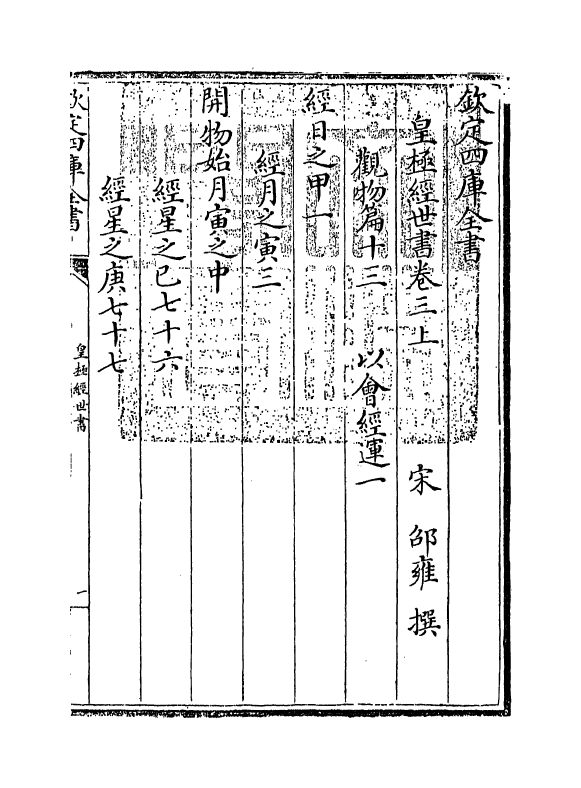 欽定四庫全書
皇極經世書卷三上　宋　邵雍　撰
觀物篇十三　以會經運一
經日之甲一
經月之寅三
開物始月寅之中
經星之己七十六
經星之庚七十七
欽定四庫全書
皇極經世書
一